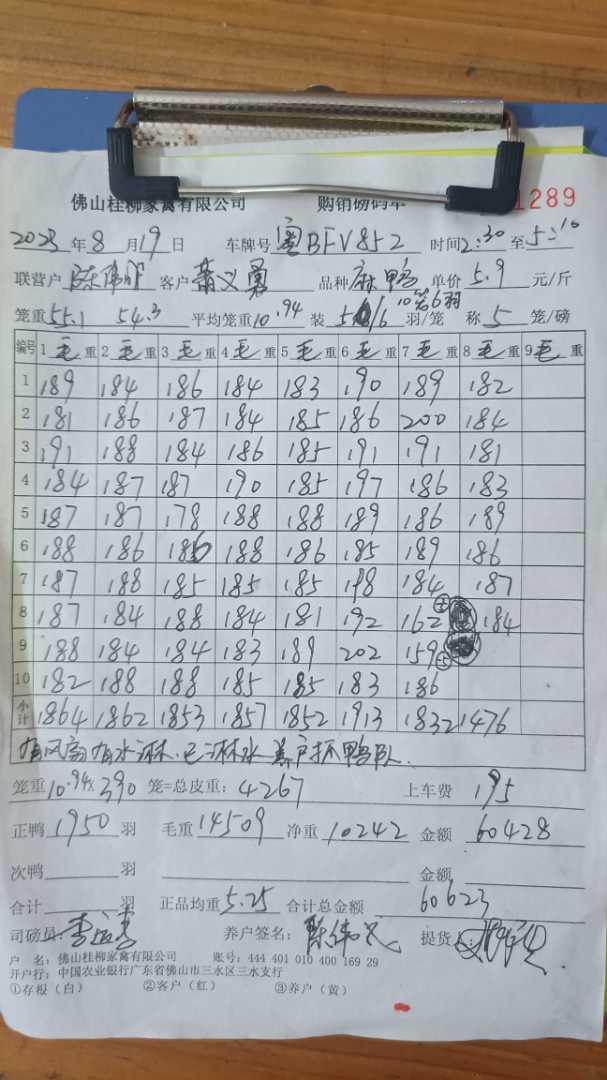 佛山桂柳家禽有限公司 购销磅码单 1289
2023年8月19日 车牌号 粤BFV852 时间2:30至5:10
联营户 陈伟 客户 萧义勇 品种 麻鸭 单价 5.9 元/斤
笼重 55.1 54.3 平均笼重 10.94 装 5/6 羽/笼 称 5 笼/磅
10笼6羽
编号 1毛重 2毛重 3毛重 4毛重 5毛重 6毛重 7毛重 8毛重 9毛重
1 189 184 186 184 183 190 189 182
2 181 186 187 184 185 186 200 184
3 191 188 184 186 185 191 191 181
4 184 187 187 190 185 197 186 183
5 187 187 178 188 188 189 186 189
6 188 186 186 188 186 185 189 186
7 187 188 185 185 185 198 184 187
8 187 184 188 184 181 192 162 184
9 188 184 184 183 189 202 159
10 182 188 188 185 185 183 186
小计 1864 1862 1853 1857 1852 1913 1832 1476
有风扇有水淋.已淋水 养户抓鸭队.
笼重10.94×390 笼=总皮重:4267 上车费 195
正鸭 1950 羽 毛重 14509 净重 10242 金额 60428
次鸭 羽 金额
合计 羽 正品均重 5.25 合计总金额 60623
司磅员: 养户签名: 陈伟 提货人:
户 名: 佛山桂柳家禽有限公司 账号: 444 401 010 400 169 29
开户行: 中国农业银行广东省佛山市三水区三水支行
①存根(白) ②客户(红) ③养户(黄)